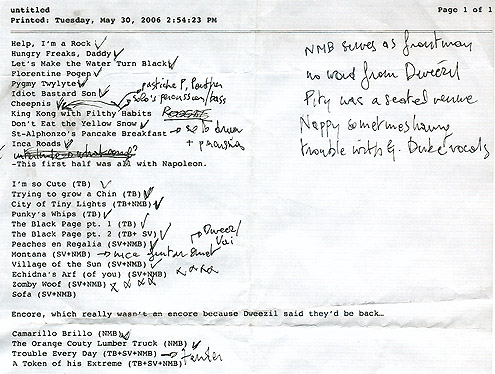 untitled
Page 1 of 1
Printed: Tuesday, May 30, 2006 2:54:23 PM
Help, I'm a Rock
Hungry Freaks, Daddy
Let's Make the Water Turn Black
Florentine Pogen
Pygmy Twylyte
Idiot Bastard Son
Cheepnis
King Kong with Filthy Habits
Don't Eat the Yellow Snow
St-Alphonzo's Pancake Breakfast
Inca Roads
-This first half was all with Napoleon.
pastiche P. Panther
solo's percussion/bass
solo drum
+ percussion
NMB serves as frontman
no word from Dweezil
Pity was a seated venue
Nappy sometimes
trouble with G. Duke vocals
I'm so Cute (TB)
Trying to grow a Chin (TB)
City of Tiny Lights (TB+NMB)
Punky's Whips (TB)
The Black Page pt. 1 (TB)
The Black Page pt. 2 (TB+ SV)
Peaches en Regalia (SV+NMB)
Montana (SV+NMB)
Village of the Sun (SV+NMB)
Echidna's Arf (of you) (SV+NMB)
Zomby Woof (SV+NMB)
Sofa (SV+NMB)
Dweezil/
Vai
nice guitar duet
Encore, which really wasn't an encore because Dweezil said they'd be back…
Camarillo Brillo (NMB)
The Orange Couty Lumber Truck (NMB)
Trouble Every Day (TB+SV+NMB)
A Token of his Extreme (TB+SV+NMB)